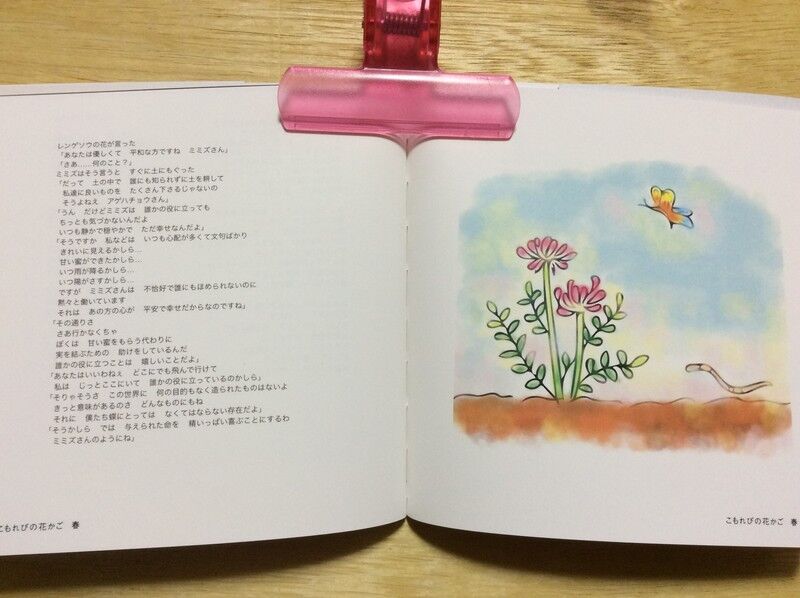 レンゲソウの花が言った
「あなたは優しくて　平和な方ですね　ミミズさん」
「さあ……何のこと？」
ミミズはそう言うと　すぐに土にもぐった
「だって　土の中で　誰にも知られずに土を耕して
私達に良いものを　たくさん下さるじゃないの
そうよねえ　アゲハチョウさん」
「うん　だけどミミズは　誰かの役に立っても
ちっとも気づかないんだよ
いつも静かで穏やかで　ただ幸せなんだよ」
「そうですか　私などは　いつも心配が多くて文句ばかり
きれいに見えるかしら…
甘い蜜ができたかしら…
いつ雨が降るかしら…
いつ陽がさすかしら…
ですが　ミミズさんは　不恰好で誰にもほめられないのに
黙々と働いています
それは　あの方の心が　平安で幸せだからなのですね」
「その通りさ
さあ行かなくちゃ
ぼくは　甘い蜜をもらう代わりに
実を結ぶための　助けをしているんだ
誰かの役に立つことは　嬉しいことだよ」
「あなたはいいわねぇ　どこにでも飛んで行けて
私は　じっとここにいて　誰かの役に立っているのかしら」
「そりゃそうさ　この世界に　何の目的もなく造られたものはないよ
きっと意味があるのさ　どんなものにもね
それに　僕たち蝶にとっては　なくてはならない存在だよ」
「そうかしら　では　与えられた命を　精いっぱい喜ぶことにするわ
ミミズさんのようにね」
こもれびの花かご　春
こもれびの花かご　春